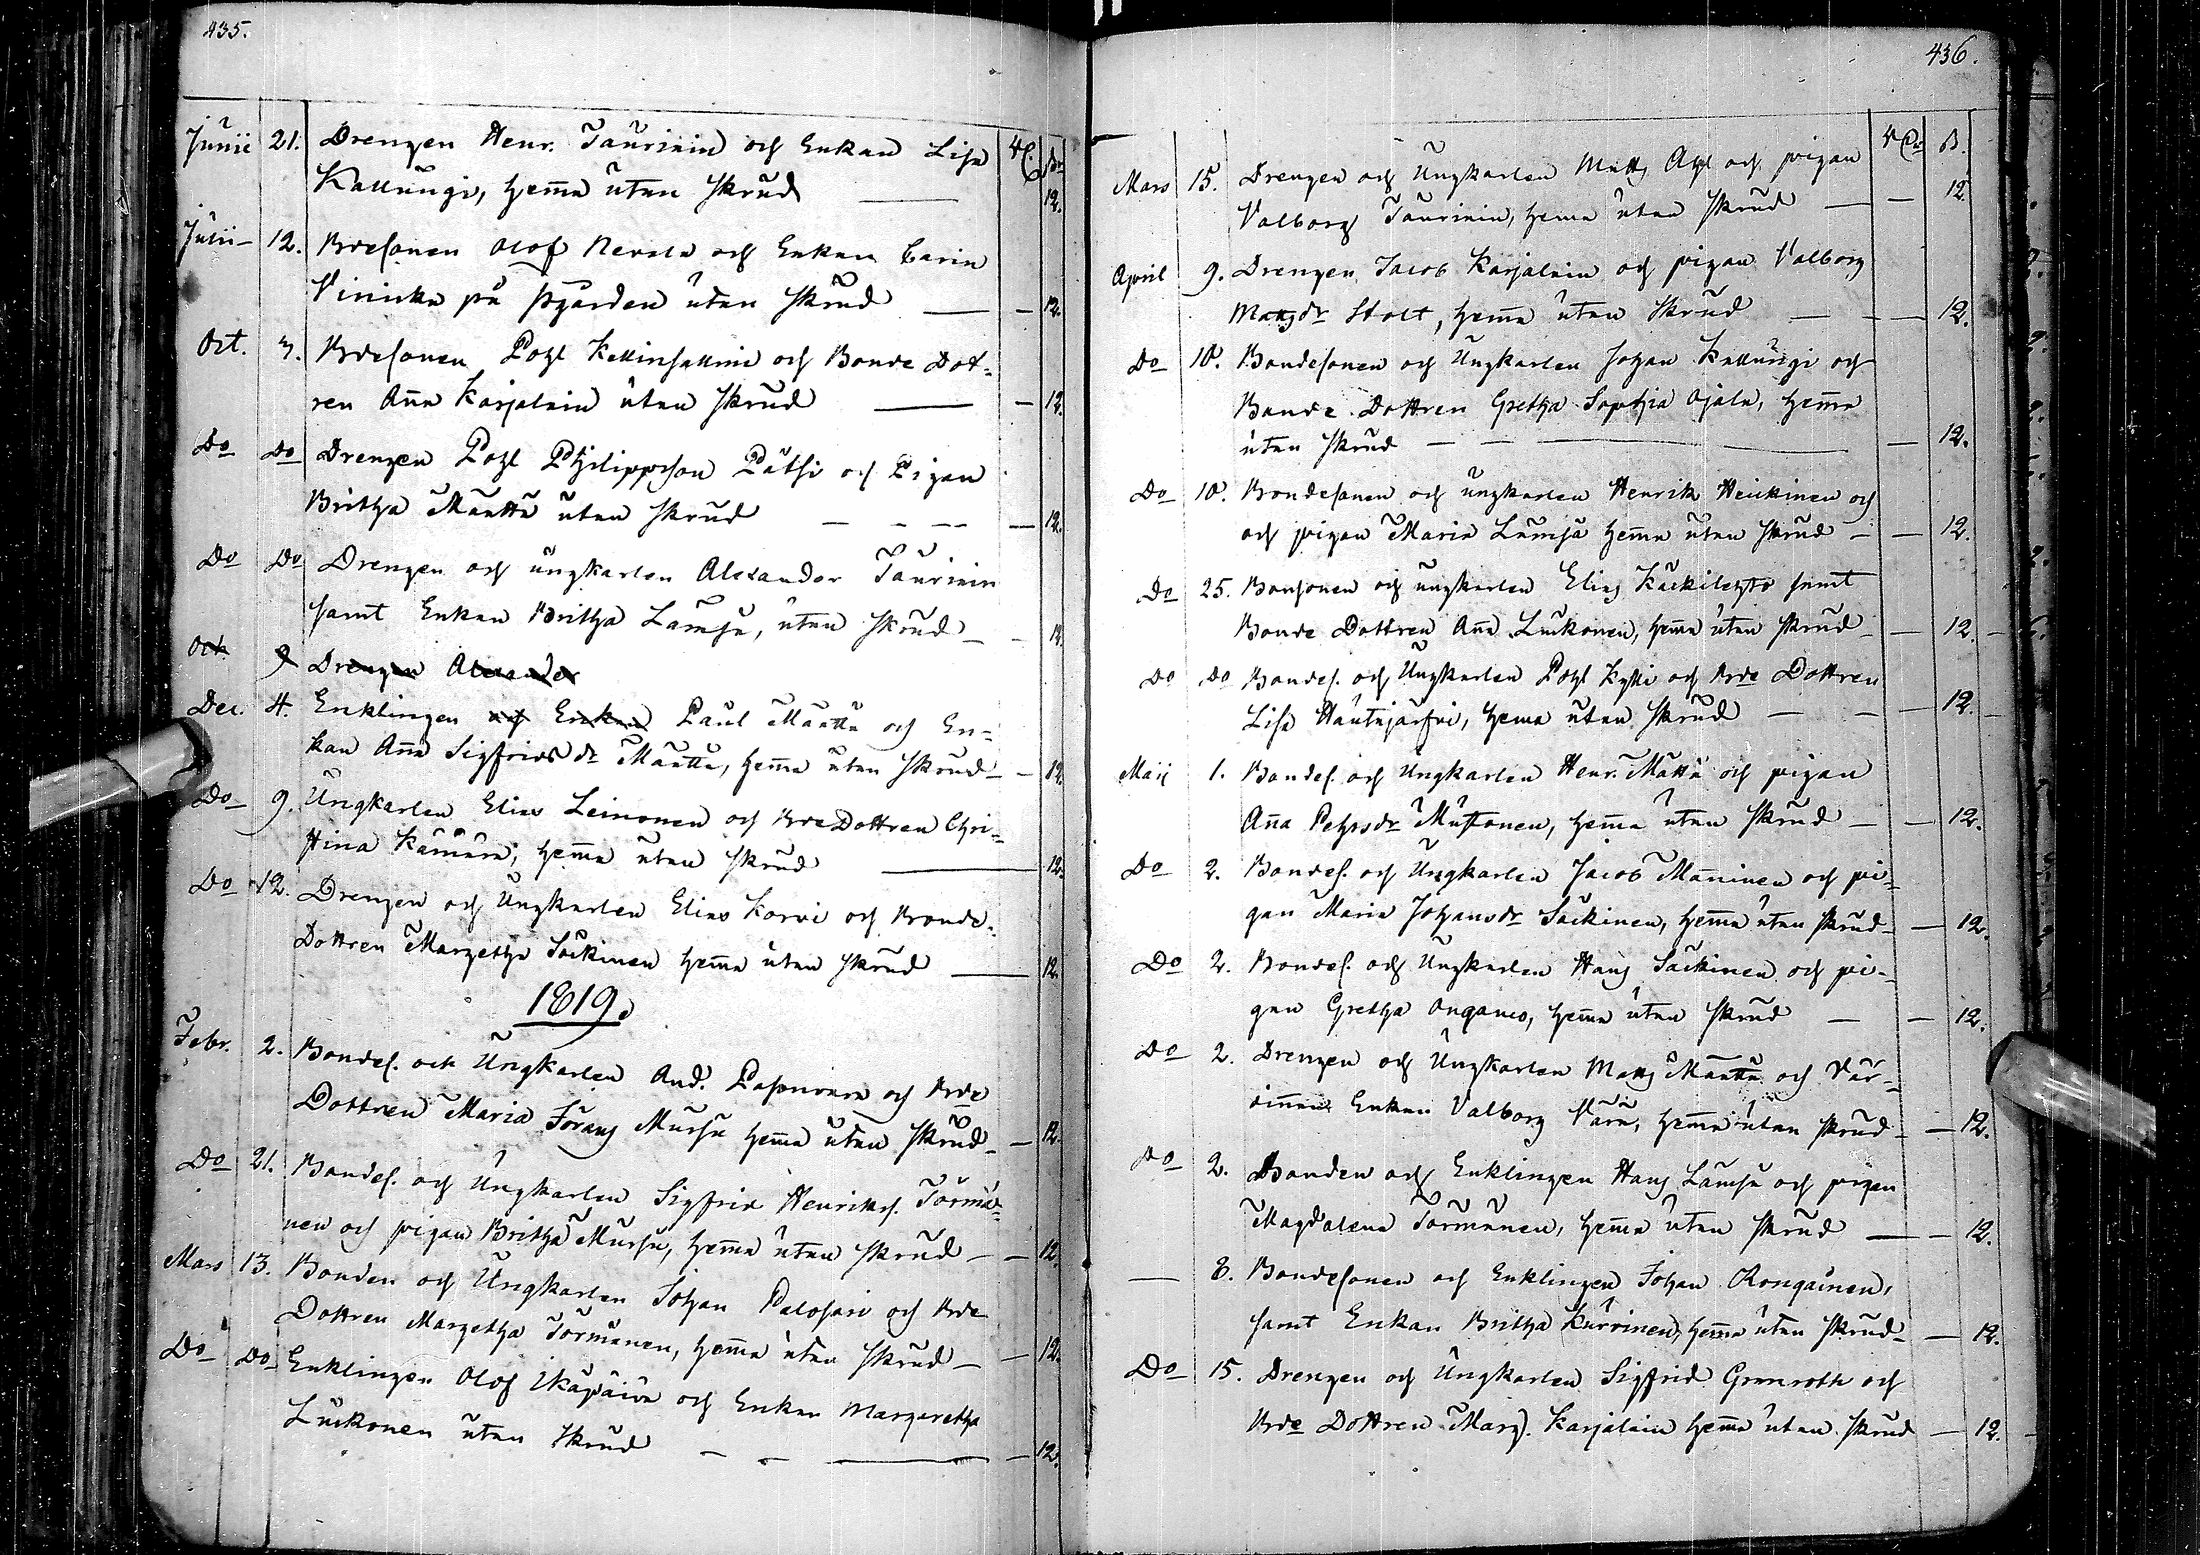 435.
Junii 21. Drengen Henr. Taurinin och Enkan Lisa
Kallungi, hem̄a utan skrud 12.
Julii 12. Bdesonen Olof Nevala och Enkan Carin
Vinicka på Pgården utan skrud 12.
Oct. 3. Bdesonen Pohl och Bonde Dot-
ren An̄a Karjalain utan skrud 12.
Do Do Drengen Pohl Philippsson Pätsi och Pigan
Britha Määttä utan skrud 12.
Do Do Drengen och ungkarlen Alexander Taurinin
samt Enkan Britha Lämsä, utan skrud 12.
Oct. 9 Drengen Alexander
Dec. 4. Enklingen och Enkan Paul Määttä och En-
kan An̄a Sigfrids dr Määttä, hem̄a utan skrud 12.
Do 9. Ungkarlen Elias Leinonen och Bde Dottren Chri-
stina Kämärä, hem̄a utan skrud 12.
Do 12. Drengen och Ungkarlen Elias Korvi och Bonde.
Dottren Margetha Säckinen hem̄a utan skrud 12.
1819.
Febr. 2. Bondes. och Ungkarlen And. och Bde
Dottren Maria Mursu hem̄a utan skrud 12.
Do 21. Bondes. och Ungkarlen Sigfrid Henriks. Törmä-
nen och pigan Britha Mursu, hem̄a utan skrud 12.
Mars 13. Bonden och Ungkarlen Johan Palosari och Bde
Dottren Margetha Törmänen, hem̄a utan skrud 12.
Do Do Enklingen Olof Ikäpäivä och Enkan Margaretha
Luckonen utan skrud 12.
436.
Mars 15. Drengen och Ungkarlen Matts och pigan
Valborg Taurinin, hema utan skrud 12
April 9. Drengen Jacob Karjalain och pigan Valborg
Matsdr Stolt, hem̄a utan skrud 12.
Do 18. Bondesonen och Ungkarlen Johan Kallungi och
Bonde Dottren Gretha Sophia Ojala, hem̄a
utan skrud 12.
Do 18. Bondesonen och ungkarlen Henrik Heickinen och
och pigan Maria Lämsä hem̄a utan skrud 12.
Do 25. Bonsonen och ungkarlen Elias Käckilehto samt
Bonde Dottren An̄a Luckonen, hem̄a utan skrud 12.
Do Do Bondes. och Ungkarlen Pohl Kylli och Bde Dottren
Lisa Hautajärfvi, hema utan skrud 12.
Maij 1. Bondes. och Ungkarlen Henr. Mättä och pigan
An̄a Pehrsdr Mustonen, hem̄a utan skrud 12.
Do 2. Bondes. och Ungkarlen Jacob Manninen och pi-
gan Maria Johansdr Säckinen, hem̄a utan skrud 12.
Do 2. Bondes. och Ungkarlen Hans Säckinen och pi-
gan Gretha Ongamo, hem̄a utan skrud 12.
Do 2. Drengen och Ungkarlen Matts Määttä och Vär-
din̄an Enkan Valborg Värä, hem̄a utan skrud 12.
Do 2. Bonden och Enklingen Hans Lämsä och pigan
Magdalena Törmänen, hem̄a utan skrud 12.
8. Bondesonen och Enklingen Johan Rongainen,
samt Enkan Britha Kurvinen, hem̄a utan skrud 12.
Do 15. Drengen och Ungkarlen Sigfrid Granroth och
Bde Dottren Marg. Karjalain hem̄a utan skrud 12.